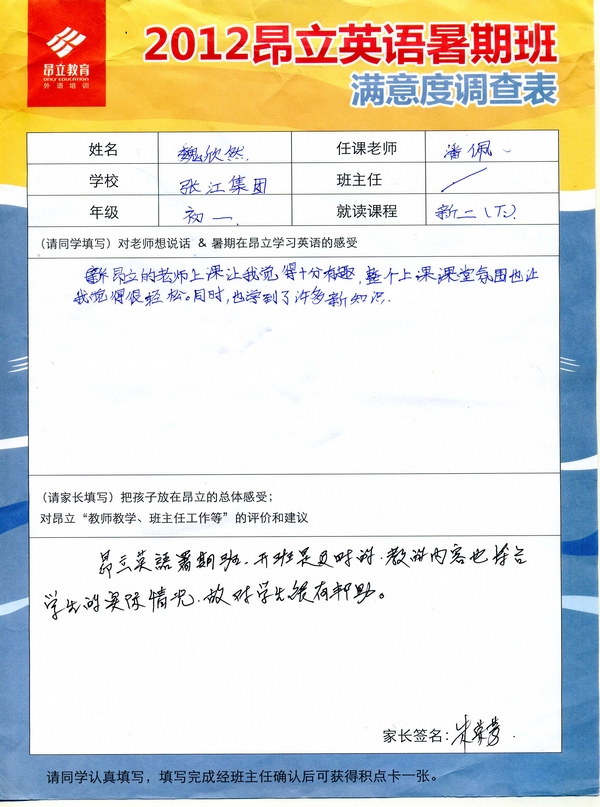 昂立教育
ONLY EDUCATION
外语培训
2012昂立英语暑期班
满意度调查表
姓名 魏欣然 任课老师 潘佩
学校 张江集团 班主任
年级 初一 就读课程 新二(下)
(请同学填写)对老师想说话 & 暑期在昂立学习英语的感受
昂立的老师上课让我觉得十分有趣,整个上课课堂氛围也让
我觉得很轻松。同时,也学到了许多新知识.
(请家长填写)把孩子放在昂立的总体感受;
对昂立“教师教学、班主任工作等”的评价和建议
昂立英語暑期班.开班是及时的.教的内容也符合
学生的实际情况.故对学生很有帮助。
家长签名:
请同学认真填写,填写完成经班主任确认后可获得积点卡一张。